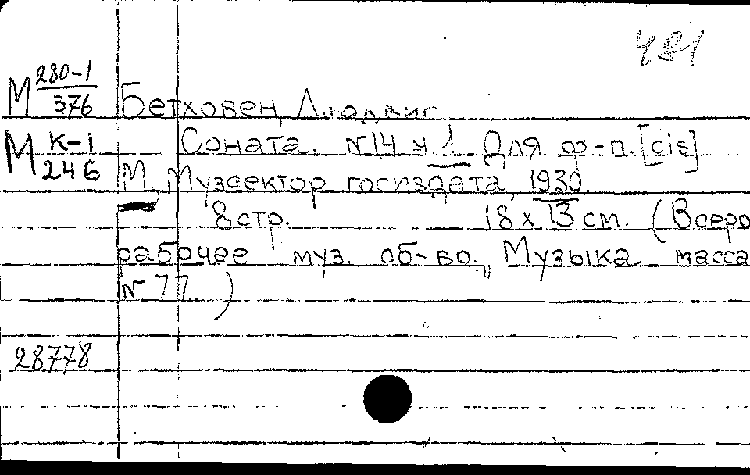 481
М 280-1/376 Бетховен, Людвиг.
М К-1/246 Соната. N14 ч 1. Для ф-п. [cis]
М., Музсектор госиздата, 1930.
8 стр. 18 x 13 см. (Всеро
рабочее муз. об-во. „Музыка масса
N 77 )
28778